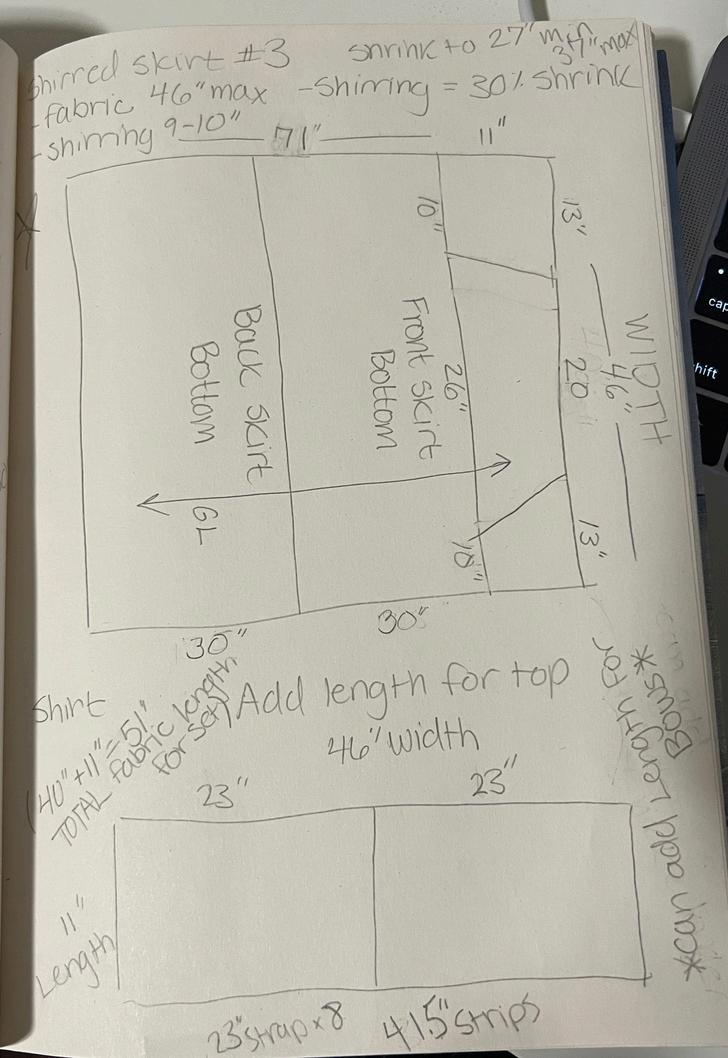 Shirred skirt #3
shrink to 27" min
37" max
-fabric 46" max
-Shirring = 30% shrink
-shirring 9-10"
71"
11"
10"
13"
WIDTH
46"
20
26"
Front skirt
Bottom
Back skirt
Bottom
GL
10"
13"
30"
30"
Shirt
(40"+11"=51"
TOTAL fabric length
for set)
Add length for top
46" width
*can add length for
Bows*
23"
23"
11"
Length
23" strap x 8
4 1.5" strips
cap
hift